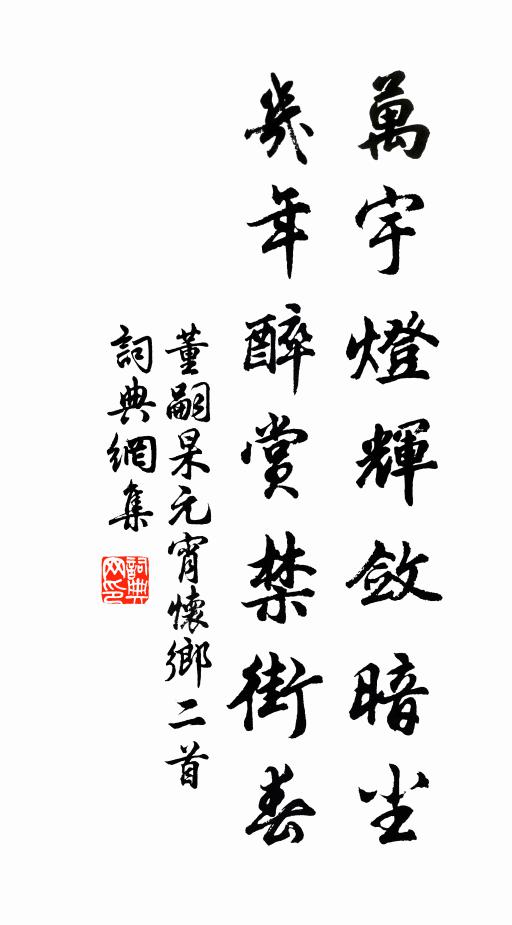 萬宇燈輝斂暗尘
幾年醉賞禁街春
董嗣杲元宵懷鄉二首
詞典網集
詞典网印